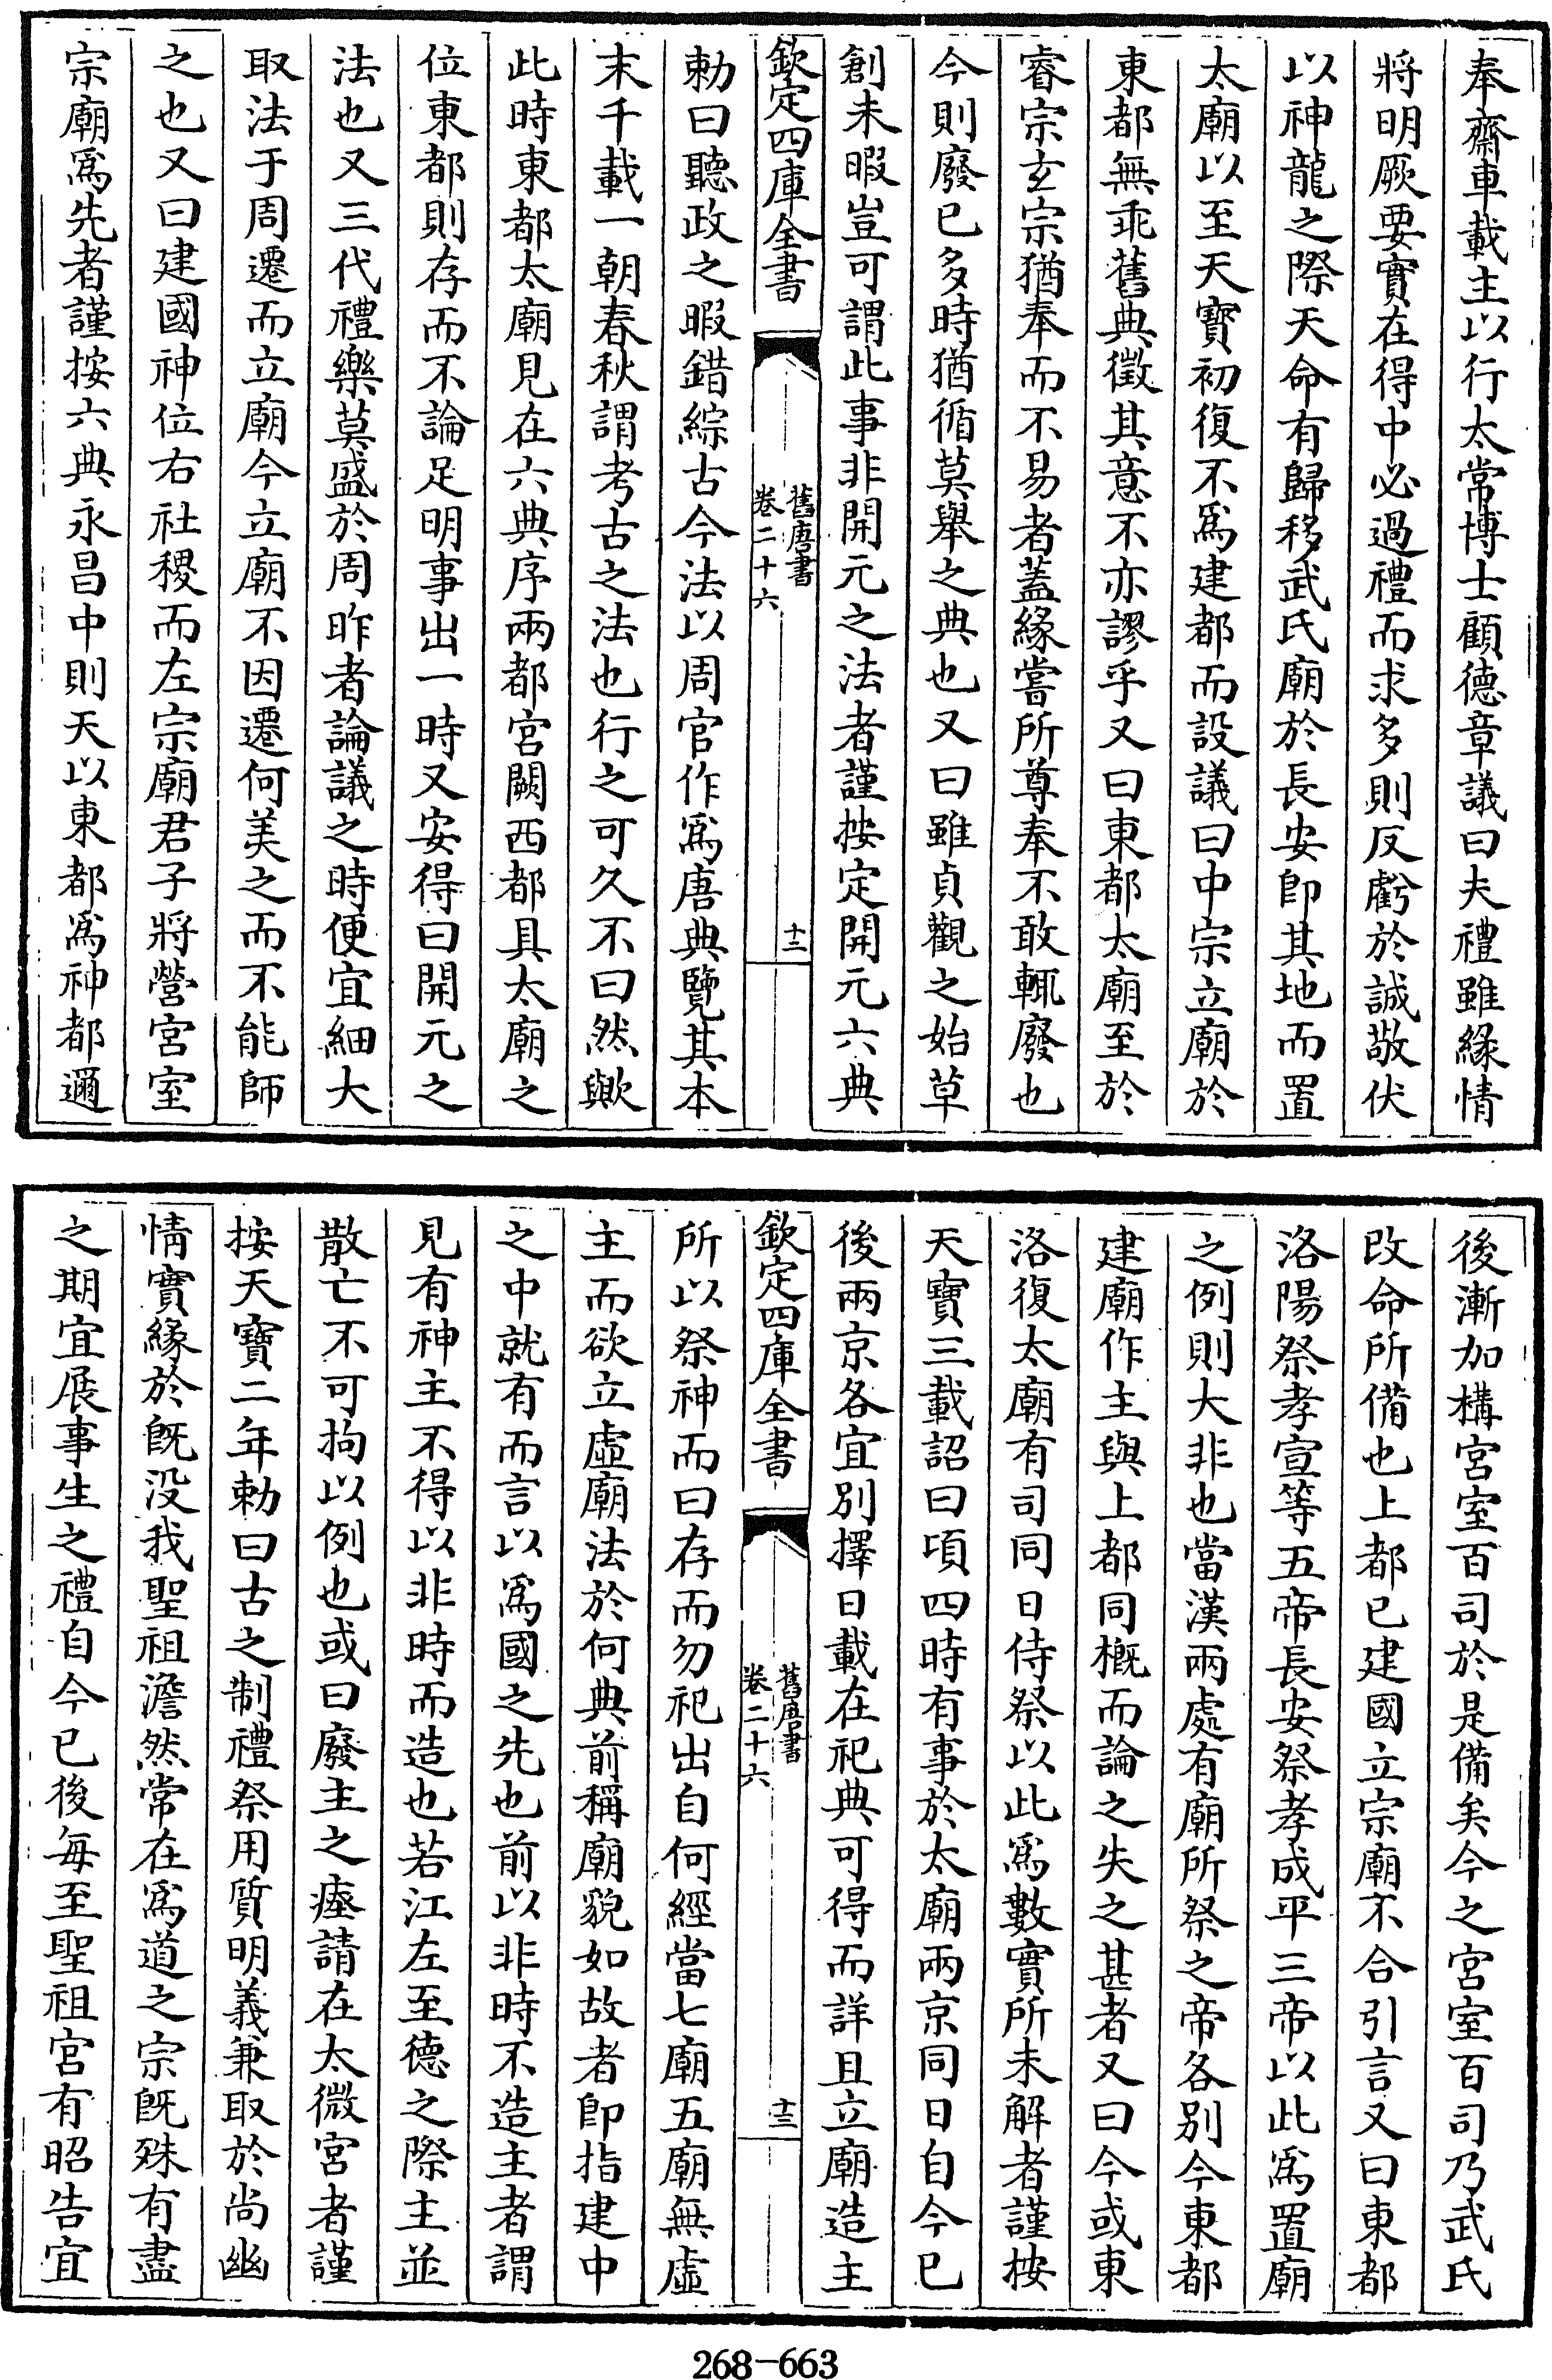 奉齋車載主以行太常博士顧德章議曰夫禮雖緣情
將明厥要實在得中必過禮而求多則反虧於誠敬伏
以神龍之際天命有歸移武氏廟於長安即其地而置
太廟以至天寶初復不爲建都而設議曰中宗立廟於
東都無乖舊典徵其意不亦謬乎又曰東都太廟至於
睿宗玄宗猶奉而不易者蓋緣嘗所尊奉不敢輒廢也
今則廢已多時猶循莫舉之典也又曰雖貞觀之始草
創未暇豈可謂此事非開元之法者謹按定開元六典
欽定四庫全書
舊唐書
卷二十六
十二
勅曰聽政之暇錯綜古今法以周官作爲唐典覽其本
末千載一朝春秋謂考古之法也行之可久不曰然歟
此時東都太廟見在六典序兩都宮闕西都具太廟之
位東都則存而不論足明事出一時又安得曰開元之
法也又三代禮樂莫盛於周昨者論議之時便宜細大
取法于周遷而立廟今立廟不因遷何美之而不能師
之也又曰建國神位右社稷而左宗廟君子將營宮室
宗廟爲先者謹按六典永昌中則天以東都爲神都邇
後漸加構宮室百司於是備矣今之宮室百司乃武氏
改命所備也上都已建國立宗廟不合引言又曰東都
洛陽祭孝宣等五帝長安祭孝成平三帝以此爲置廟
之例則大非也當漢兩處有廟所祭之帝各別今東都
建廟作主與上都同槪而論之失之甚者又曰今或東
洛復太廟有司同日侍祭以此爲數實所未解者謹按
天寶三載詔曰頃四時有事於太廟兩京同日自今已
後兩京各宜別擇日載在祀典可得而詳且立廟造主
欽定四庫全書
舊唐書
卷二十六
十三
所以祭神而曰存而勿祀出自何經當七廟五廟無虛
主而欲立虛廟法於何典前稱廟貌如故者即指建中
之中就有而言以爲國之先也前以非時不造主者謂
見有神主不得以非時而造也若江左至德之際主並
散亡不可拘以例也或曰廢主之瘞請在太微宮者謹
按天寶二年勅曰古之制禮祭用質明義兼取於尚幽
情實緣於旣没我聖祖澹然常在爲道之宗旣殊有盡
之期宜展事生之禮自今已後每至聖祖宮有昭告宜
268-663